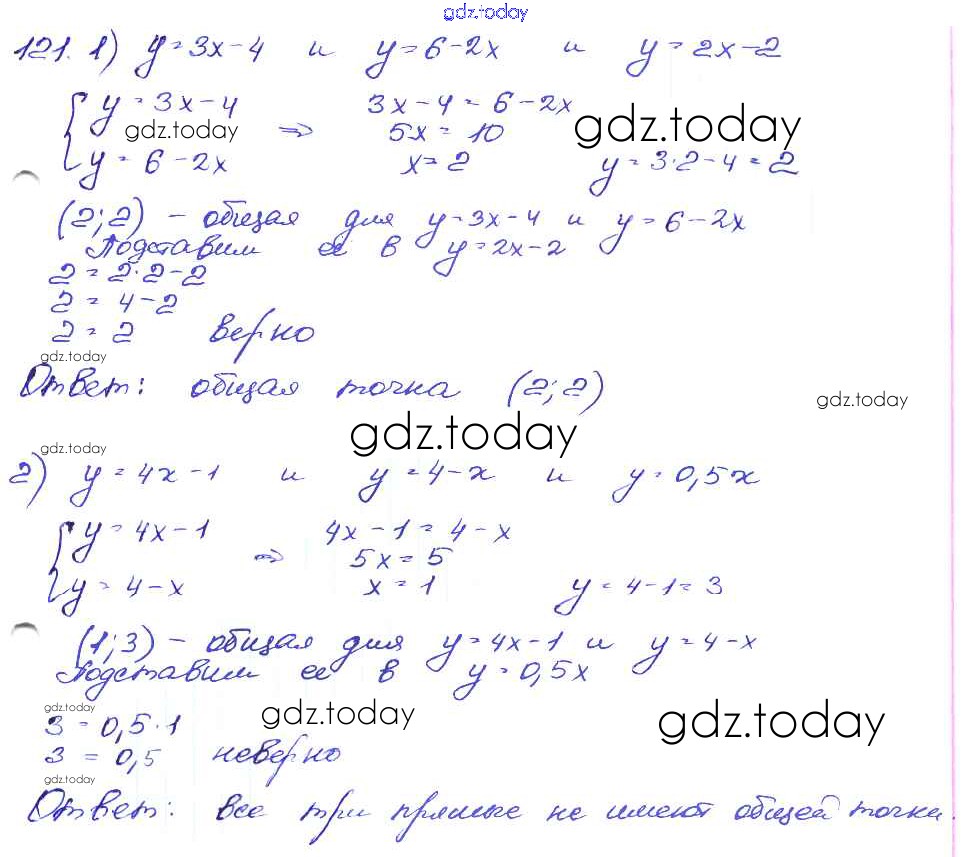 gdz.today
121. 1) y = 3x - 4 и y = 6 - 2x и y = 2x - 2
y = 3x - 4 3x - 4 = 6 - 2x
gdz.today ⇒ 5x = 10 gdz.today
y = 6 - 2x x = 2 y = 3·2 - 4 = 2
(2; 2) - общая для y = 3x - 4 и y = 6 - 2x
Подставим ее в y = 2x - 2
2 = 2·2 - 2
2 = 4 - 2
2 = 2 верно
gdz.today
Ответ: общая точка (2; 2)
gdz.today
gdz.today
gdz.today
2) y = 4x - 1 и y = 4 - x и y = 0,5x
y = 4x - 1 4x - 1 = 4 - x
⇒ 5x = 5
y = 4 - x x = 1 y = 4 - 1 = 3
(1; 3) - общая для y = 4x - 1 и y = 4 - x
Подставим ее в y = 0,5x
gdz.today gdz.today gdz.today
3 = 0,5·1
3 = 0,5 неверно
gdz.today
Ответ: все три прямые не имеют общей точки.